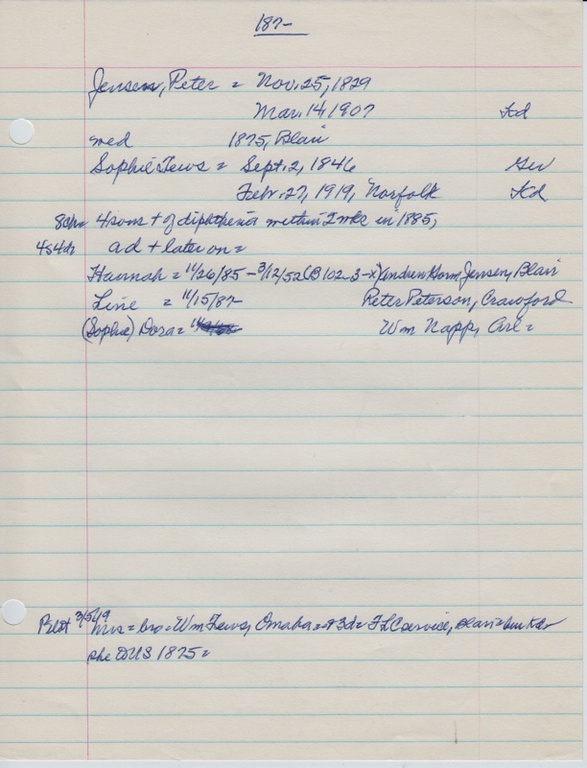 187-
Jensen, Peter = Nov. 25, 1829
Mar. 14, 1907 Kd
med 1875, Blair
Sophie Tews = Sept. 2, 1846 Ger
Febr. 27, 1919, Norfolk Kd
8chn 4 sons + of diphtheria within 2 wks in 1885,
4s4ds ad + later on =
Hannah = 11/26/85 - 3/12/52 (B 102-3-x) Andrew Norm Jensen, Blair
Line = 11/15/87 Peter Peterson, Crawford
(Sophie) Dora = Wm Napp, Arl =
3/5/19 Mrs = bro = Wm Tews, Omaha = + 3ds = FLC service, Blair =
she D US 1875 =